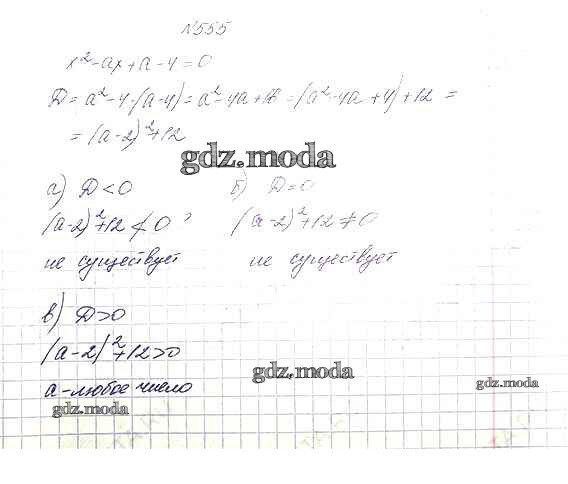 №555
x²-ax+a-4=0
D=a²-4·(a-4)=a²-4a+16=(a²-4a+4)+12=
=(a-2)²+12
gdz.moda
а) D<0 б) D=0
(a-2)²+12≮0, (a-2)²+12≠0
не существует не существует
в) D>0
(a-2)²+12>0
gdz.moda
gdz.moda
a-любое число
gdz.moda